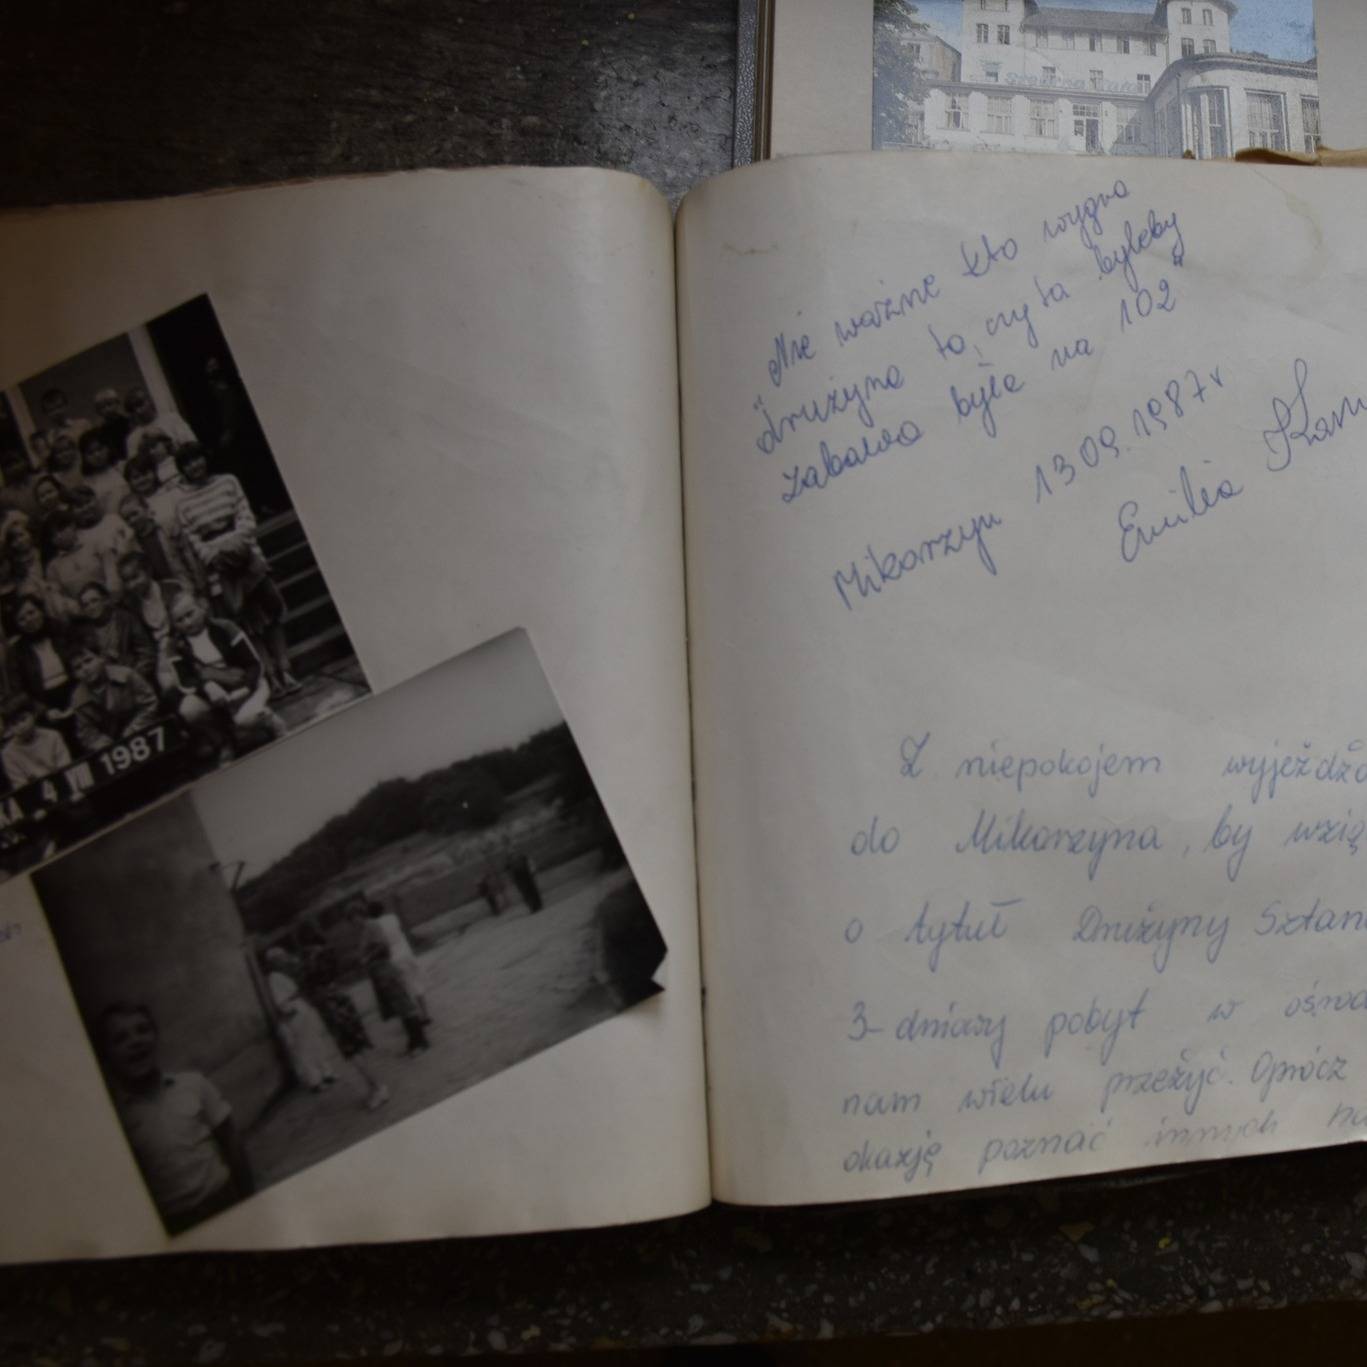 "Nie ważne kto wygra
drużyna ta, czy ta byleby
zabawa była na 102"
Mikorzyn 13.09.1987r
Emilia
Z niepokojem wyjeżdża
do Mikorzyna, by wzią
o tytuł Drużyny Sztan
3-dniowy pobyt w ośrod
nam wielu przeżyć. Oprócz
okazję poznać innych
4 VII 1987